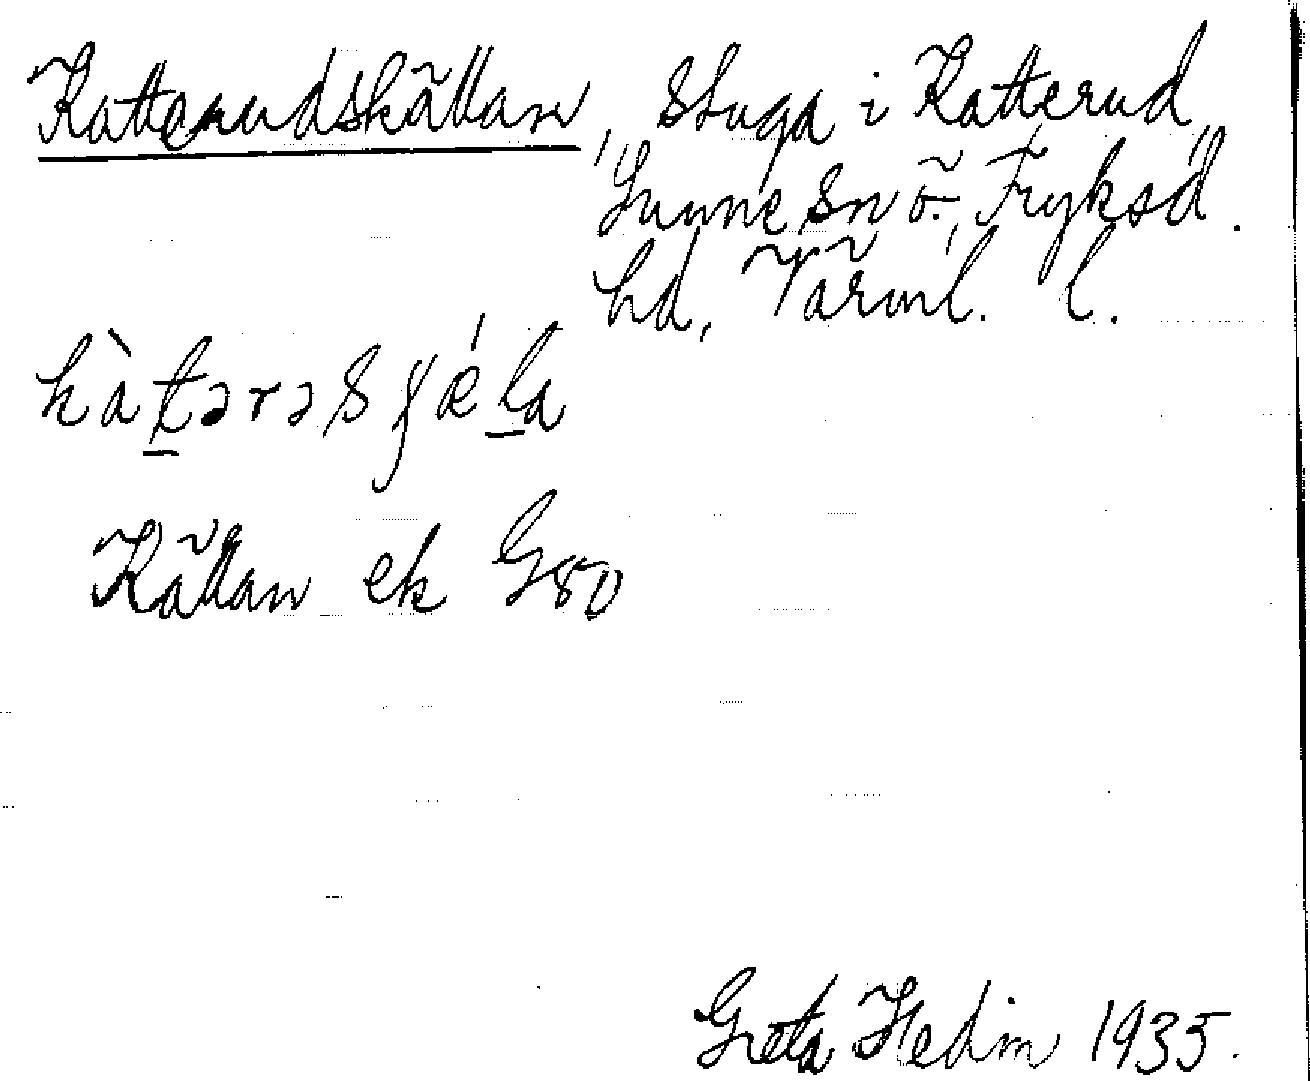 Katterudskällan, stuga i Katterud,
Sunne sn ö., Fryksd.
hd, Värml. l.
kàt̲ərəsʃǽl̲a
Källan ek GSD
Greta Hedin 1935.